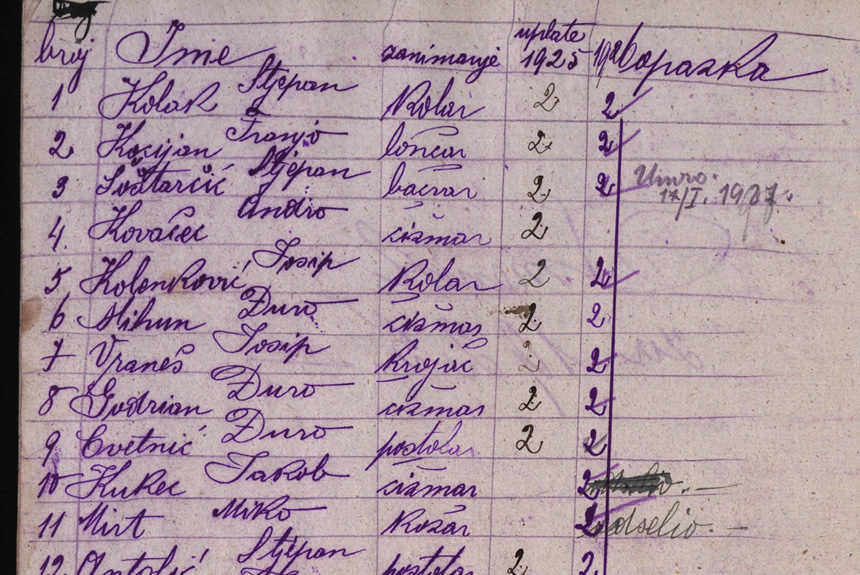 broj Ime zanimanje uplate 1925 1926 opazka
1 Kolak Stjepan Kolar 2 2
2 Kocijan Franjo lončar 2 2
3 Šoštarčić Stjepan bačvar 2 2 Umro 17/I. 1927.
4. Kovačec Andro čižmar 2
5 Kolenković Josip Kolar 2 2
6 Mihun Đuro čižmar 2 2
7 Vraneš Josip Krojač 2 2
8 Godrian Đuro čižmar 2 2
9 Cvetnić Đuro postolar 2 2
10 Kukec Jakob čižmar 2
11 Mirt Miko Kožar 2 odselio. —
12 Antolić Stjepan postolar 2 2